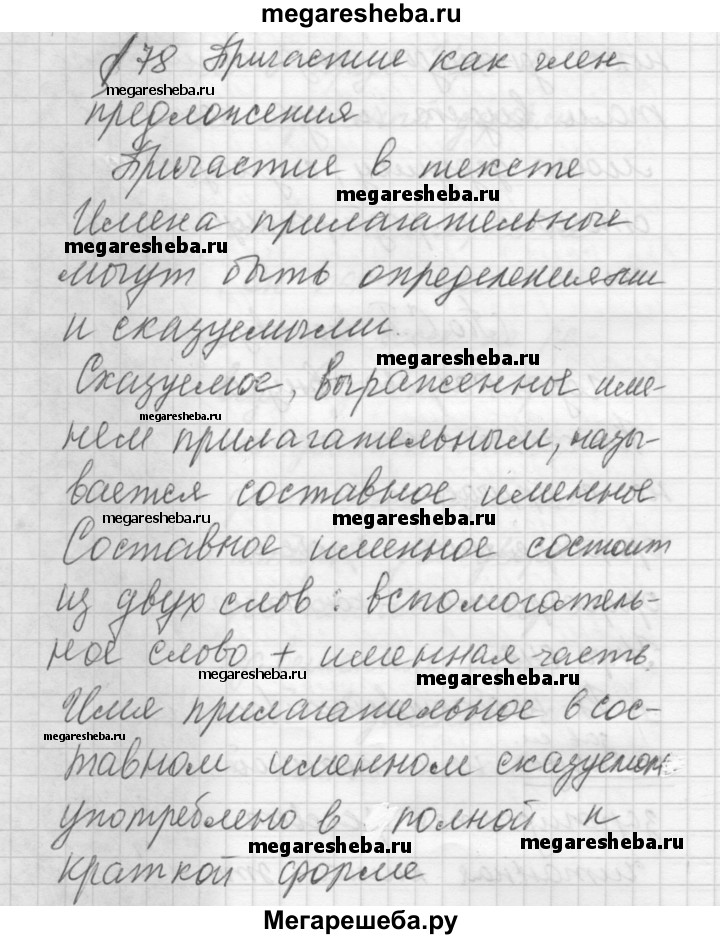 megaresheba.ru
§ 78 Причастие как член
megaresheba.ru
предложения
Причастие в тексте
megaresheba.ru
Имена прилагательные
megaresheba.ru
могут быть определениями
и сказуемыми.
megaresheba.ru
Сказуемое, выраженное име-
megaresheba.ru
нем прилагательным, назы-
вается составное именное
megaresheba.ru megaresheba.ru
Составное именное состоит
из двух слов: вспомогатель-
ное слово + именная часть.
megaresheba.ru megaresheba.ru
Имя прилагательное в сос-
megaresheba.ru
тавном именном сказуемом
употреблено в полной и
megaresheba.ru megaresheba.ru
краткой форме
Мегарешеба.ру